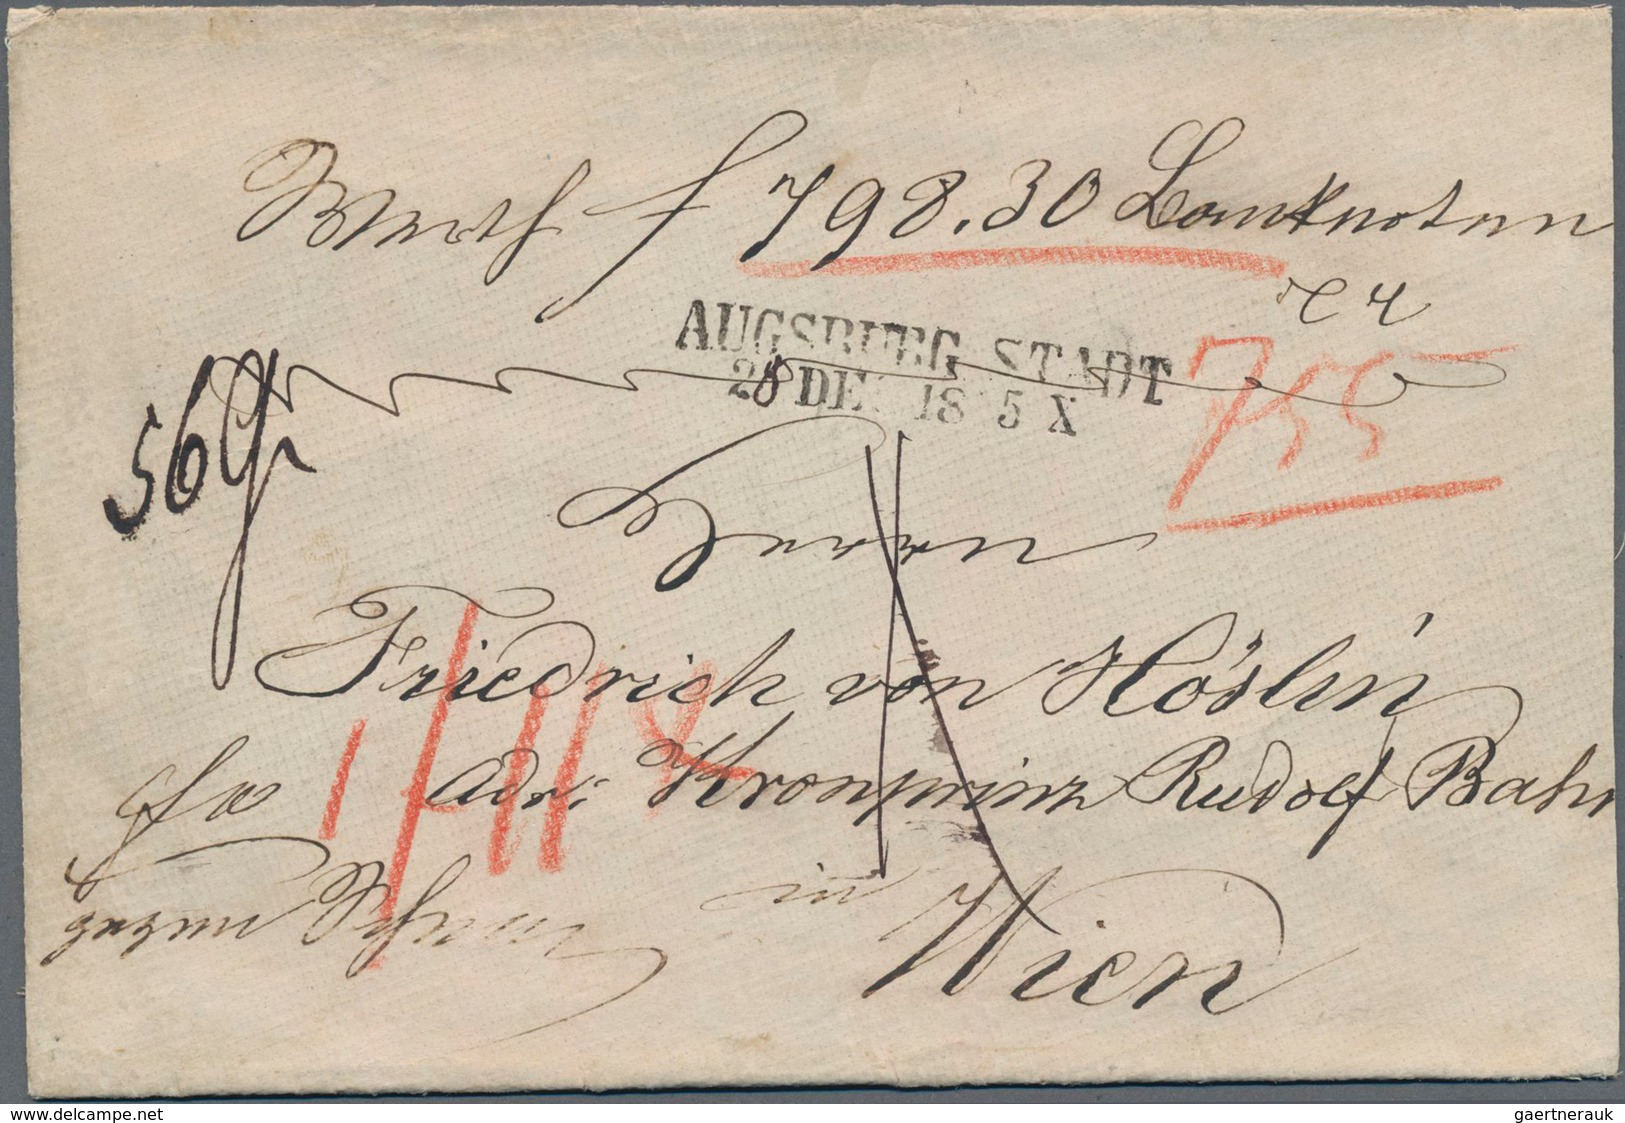 Werth f 798.30 Banknoten
AUGSBURG STADT
28 DE 18 5 X
755
56 Gr
Herrn
Friedrich von Höslin
fco Adr: Kronprinz Rudolf Bahn
gegen Schein in
Wien
www.delcampe.net
gaertnerauk